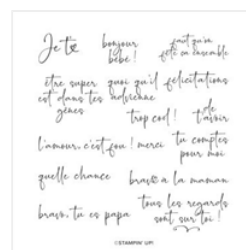 Je t♥
bonjour
bébé !
faut qu'on
fête ça ensemble
être super
est dans tes
gènes
quoi qu'il
advienne
félicitations
trop cool !
de
t'avoir
l'amour, c'est fou !
merci
tu comptes
pour moi
quelle chance
bravo à la maman
bravo, tu es papa
tous les regards
sont sur toi !
©STAMPIN' UP!